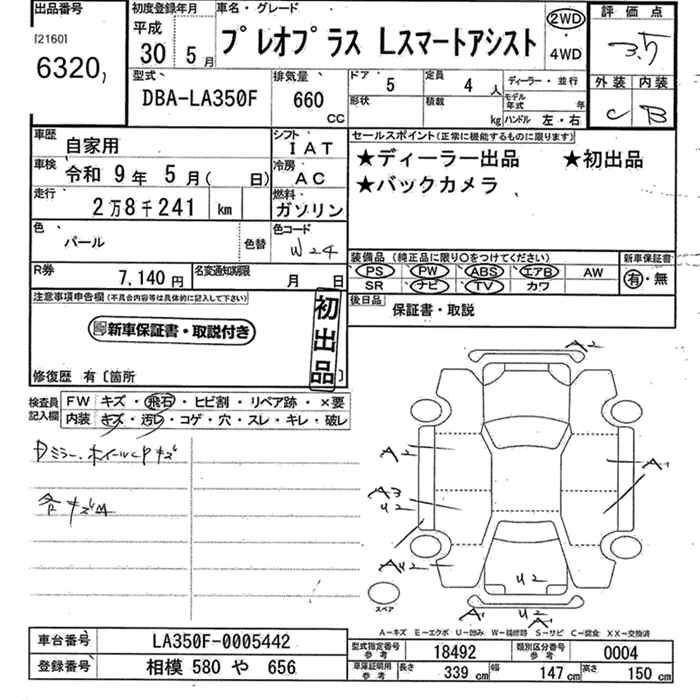 出品番号
[2160]
6320
初度登録年月
平成
30 5月
車名・グレード
プレオプラス Lスマートアシスト
2WD
4WD
評価点
3.5
外装 内装
C B
型式
DBA-LA350F
排気量
660
CC
ドア
5
定員
4人
形状
積載
kg
ディーラー・並行
モデル年式 年
ハンドル 左・右
車歴
自家用
シフト
IAT
車検
令和 9年 5月( 日)
冷房
AC
走行
2万8千241 km
燃料
ガソリン
色
パール
色替
色コード
W24
R券
7,140円
名変通知期限
月 日
セールスポイント(正常に機能するものに限ります)
★ディーラー出品 ★初出品
★バックカメラ
装備品(純正品に限り○をつけてください)
PS PW ABS エアB AW
SR ナビ TV カワ
新車保証書
有・無
後日品
保証書・取説
注意事項申告欄(不具合内容等は具体的に記入して下さい)
新車保証書・取説付き
初出品
修復歴 有〔箇所 〕
検査員記入欄
FW キズ・飛石・ヒビ割・リペア跡・×要
内装 キズ・汚レ・コゲ・穴・スレ・キレ・破レ
A2
A2
A1
A3
U2
AU2
U2
A1
U2
A
スペア
A−キズ E−エクボ U−凹み W−補修跡 S−サビ C−腐食 XX−交換済
車台番号
LA350F-0005442
登録番号
相模 580 や 656
型式指定番号
参考
18492
類別区分番号
参考
0004
車庫証明用
参考
長さ
339 cm
幅
147 cm
高さ
150 cm